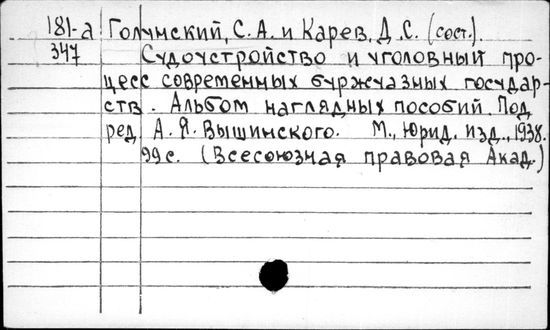 181-а Голунский, С. А. и Карев, Д. С. (сост.).
347 Судоустройство и уголовный про-
цесс современных буржуазных государ-
ств. Альбом наглядных пособий. Под
ред. А. Я. Вышинского. М., Юрид. изд., 1938.
99 с. (Всесоюзная правовая Акад.)